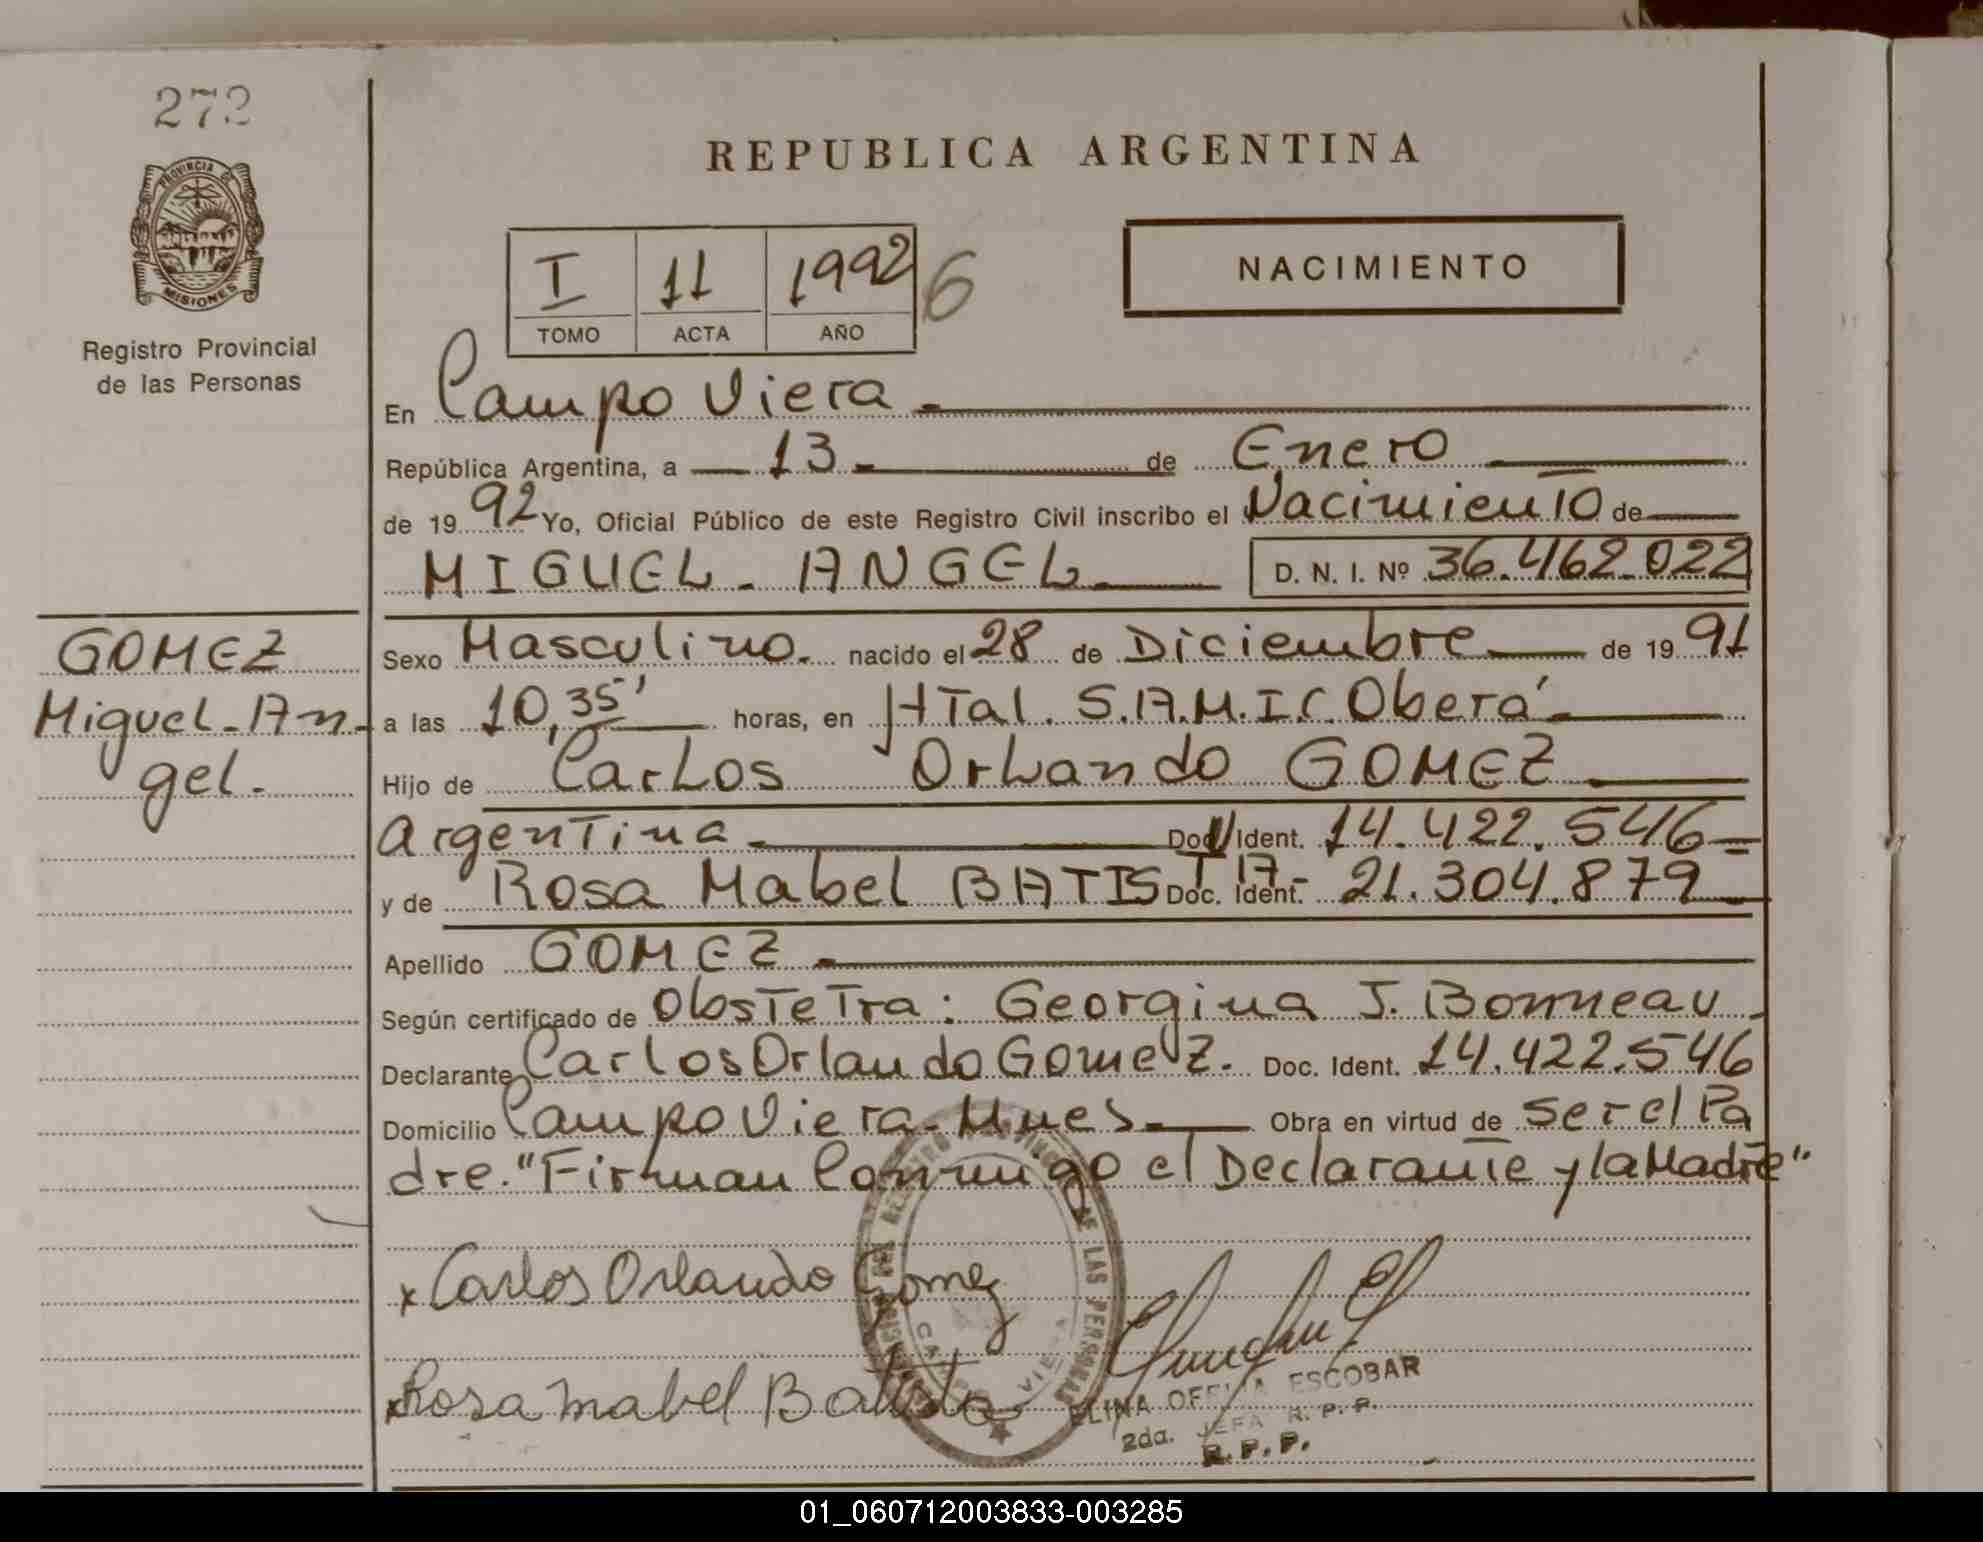 272
PROVINCIA DE
MISIONES
Registro Provincial
de las Personas
REPUBLICA ARGENTINA
I 11 1992 6
TOMO ACTA AÑO
NACIMIENTO
En Campo Viera.
República Argentina, a 13 de Enero
de 1992 Yo, Oficial Público de este Registro Civil inscribo el Nacimiento de
MIGUEL - ANGEL D. N. I. Nº 36.462.022
GOMEZ
Miguel-An-
gel.
Sexo Masculino. nacido el 28 de Diciembre de 1991
a las 10,35' horas, en HTal. S.A.M.I.C. Oberá
Hijo de Carlos Orlando GOMEZ
Argentina Doc. Ident. 14.422.546
y de Rosa Mabel BATISTA- Doc. Ident. 21.304.879
Apellido GOMEZ
Según certificado de Obstetra: Georgina J. Bonneau
Declarante Carlos Orlando Gomez. Doc. Ident. 14.422.546
Domicilio Campo Viera-Mnes. Obra en virtud de ser el Pa
dre. "Firman Conmigo el Declarante y la Madre"
x Carlos Orlando Gomez
x Rosa Mabel Batista
DE LAS PERSONAS
VIERA
ELINA OFELIA ESCOBAR
2da. JEFA R. P. P.
R. P. P.
01_060712003833-003285